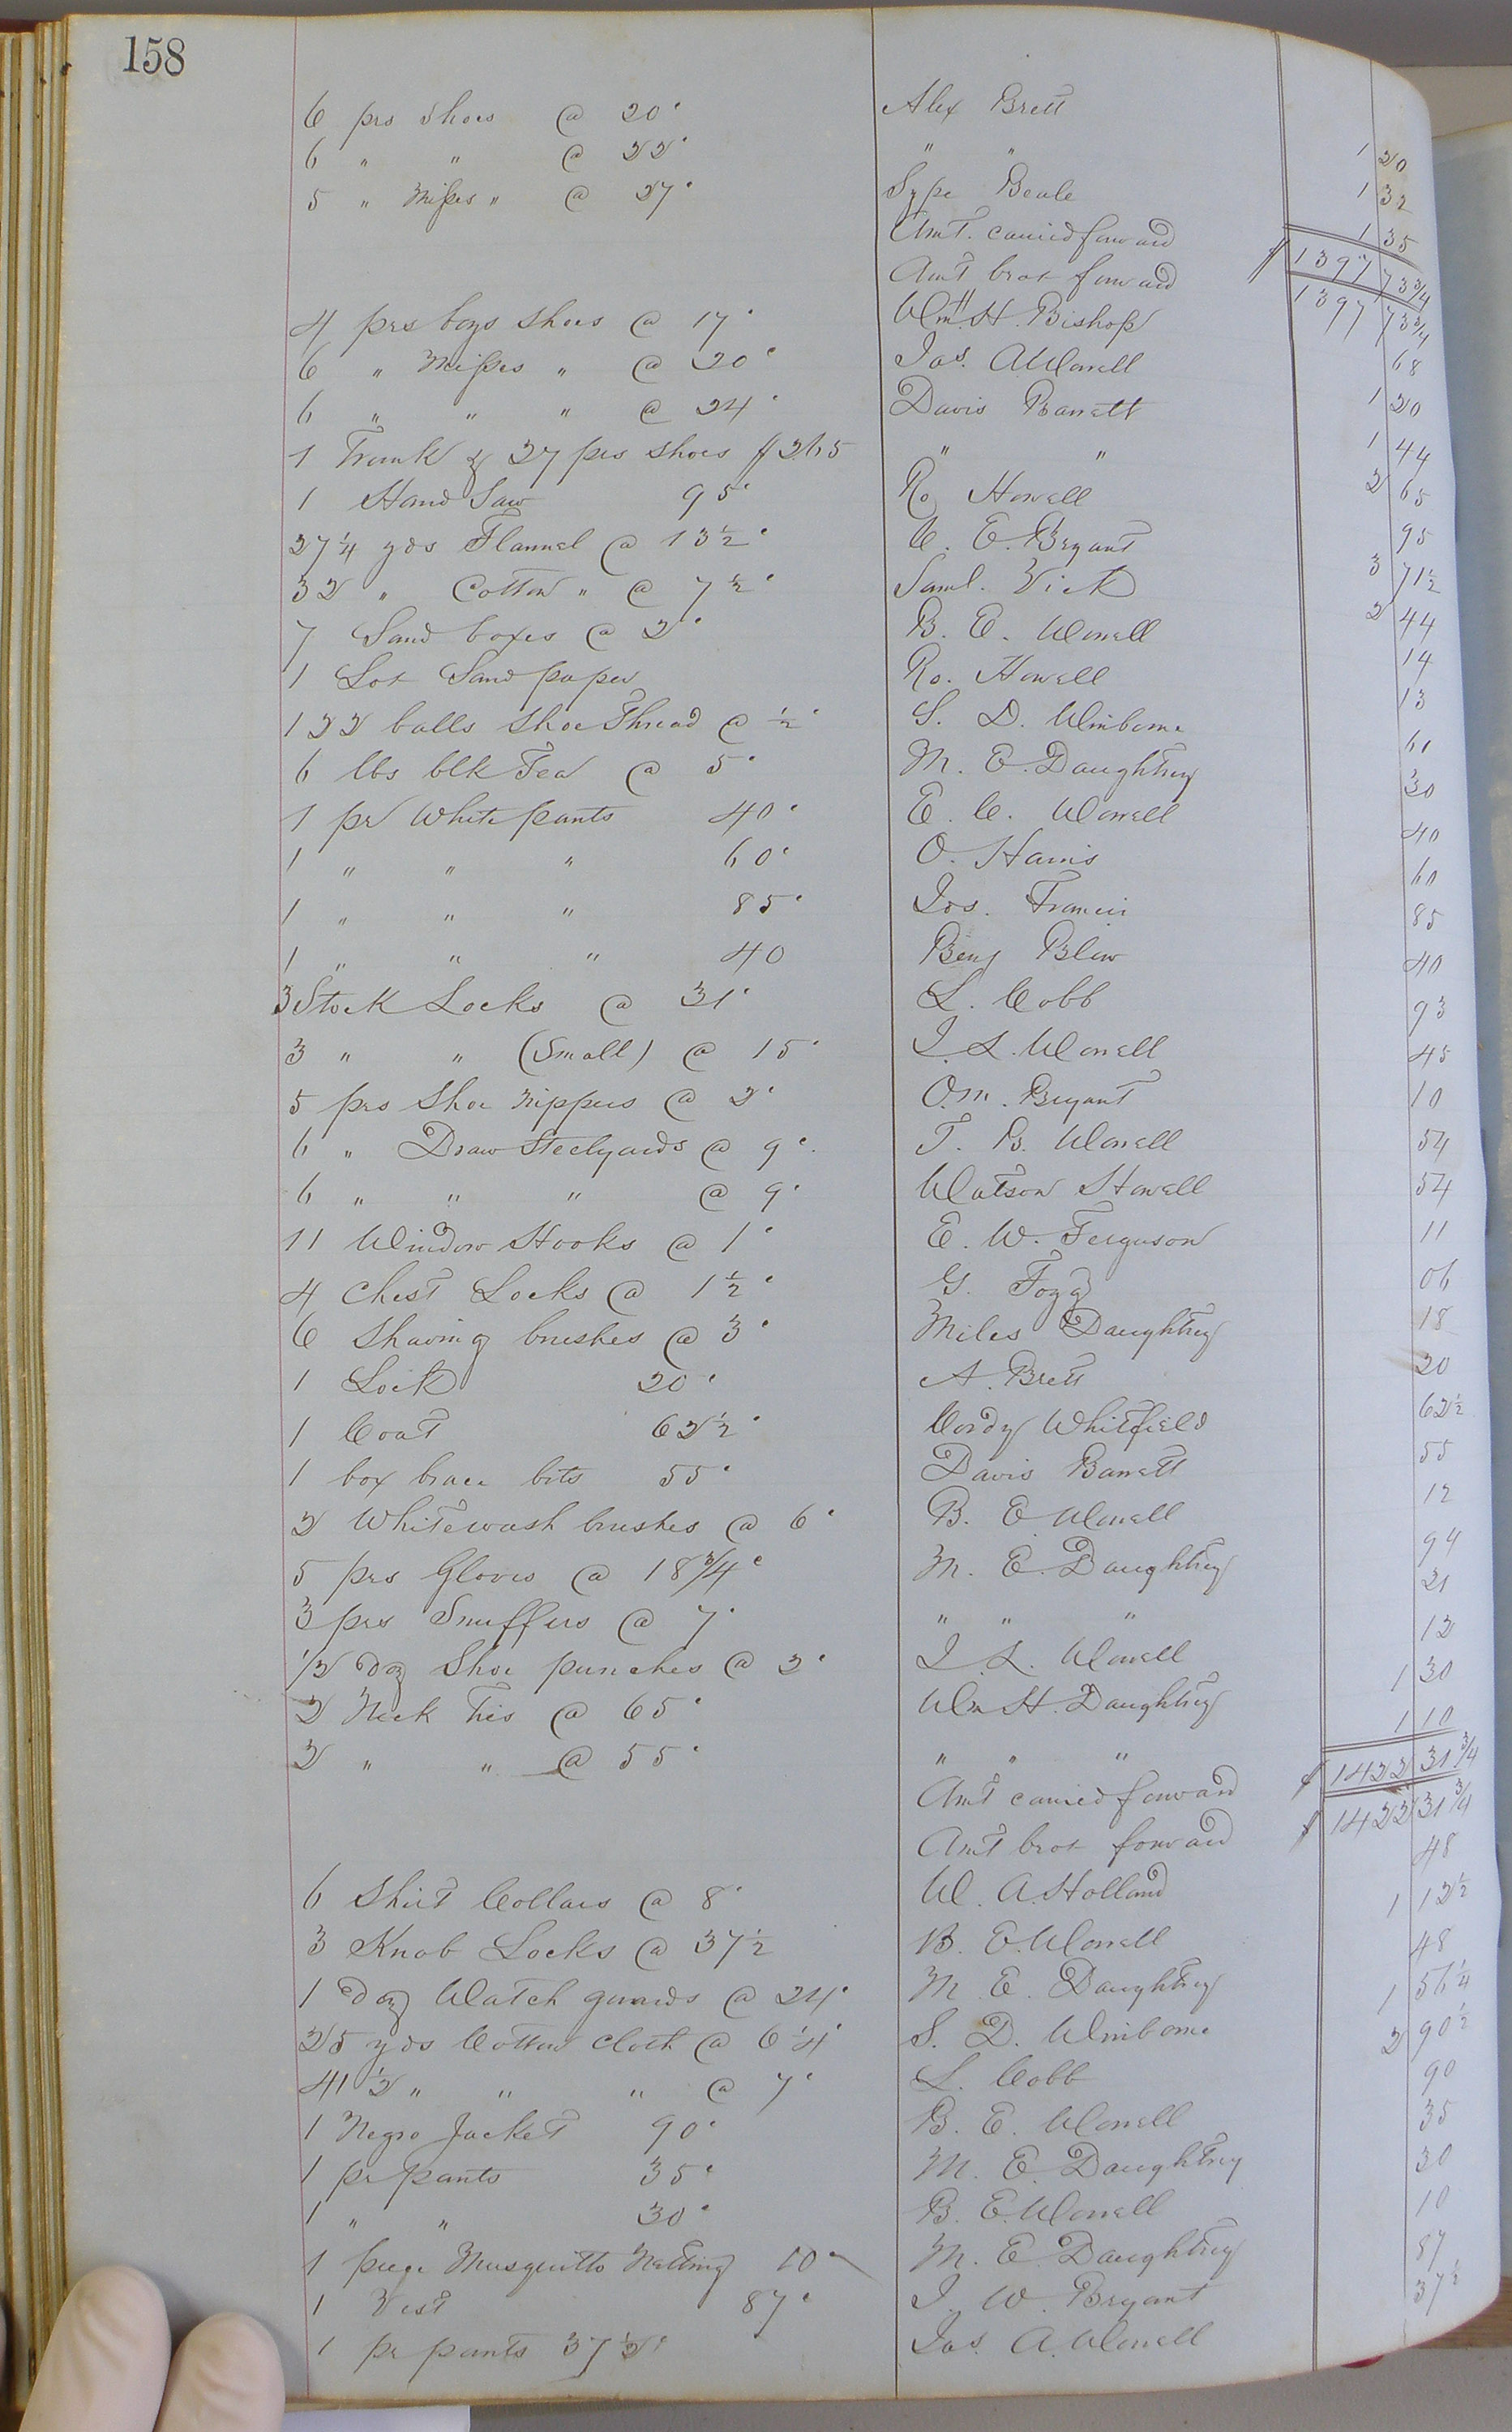 158
6 prs Shoes @ 20c Alex Brett 1 20
6 " " @ 22c " " 1 32
5 " Misses " @ 27c Sype Beale 1 35
Amt. carried forward $ 1397 73 3/4
Amt brot forward 1397 73 3/4
4 prs boys Shoes @ 17c Wm. H. Bishop 68
6 " Misses " @ 20c Jas. A Worrell 1 20
6 " " " @ 24c Davis Barrett 1 44
1 Trunk & 27 prs Shoes $2.65 " " 2 65
1 Hand Saw 95c Ro Howell 95
27 1/4 yds Flannel @ 13 1/2c C. E. Bryant 3 71 1/2
32 " Cotton " @ 7 1/2c Saml. Vick 2 44
7 Sand boxes @ 2c B. E. Worrell 14
1 Lot Sand paper Ro. Howell 13
122 balls Shoe Thread @ 1/2c S. D. Winborne 61
6 lbs blk Tea @ 5c M. E. Daughtrey 30
1 pr White pants 40c E. C. Worrell 40
1 " " " 60c O. Harris 60
1 " " " 85c Jos. Francis 85
1 " " " 40 Benj Blow 40
3 Stock Locks @ 31c L. Cobb 93
3 " " (Small) @ 15c J. L. Worrell 45
5 prs Shoe Nippers @ 2c O. M. Bryant 10
6 " Draw Steelyards @ 9c. T. B. Worrell 54
6 " " " @ 9c Watson Howell 54
11 Window Hooks @ 1c E. W. Ferguson 11
4 Chest Locks @ 1 1/2c G. Fogg 06
6 Shaving brushes @ 3c Miles Daughtrey 18
1 Lock 20c A. Brett 20
1 Coat 62 1/2c Cordy Whitfield 62 1/2
1 box brace bits 55c Davis Barrett 55
2 Whitewash brushes @ 6c B. E Worrell 12
5 prs Gloves @ 18 3/4c M. E. Daughtrey 94
3 prs Snuffers @ 7c " " " 21
1/2 doz Shoe punches @ 2c J. L. Worrell 12
2 Neck Ties @ 65c Wm H. Daughtrey 1 30
2 " " @ 55c " " " 1 10
Amt carried forward $ 1422 31 3/4
Amt brot forward $ 1422 31 3/4
6 Shirt Collars @ 8c W. A. Holland 48
3 Knob Locks @ 37 1/2 B. E. Worrell 1 12 1/2
1 doz Watch guards @ 24c M. E. Daughtrey 48
25 yds Cotton Cloth @ 6 1/4c S. D. Winborne 1 56 1/4
41 1/2 " " " @ 7c L. Cobb 2 90 1/2
1 Negro Jacket 90c B. E. Worrell 90
1 pr pants 35c M. E. Daughtrey 35
1 " " 30c B. E. Worrell 30
1 piece Musquitto Netting 10c M. E Daughtrey 10
1 Vest 87c J. W. Bryant 87
1 pr pants 37 1/2c Jas. A. Worrell 37 1/2